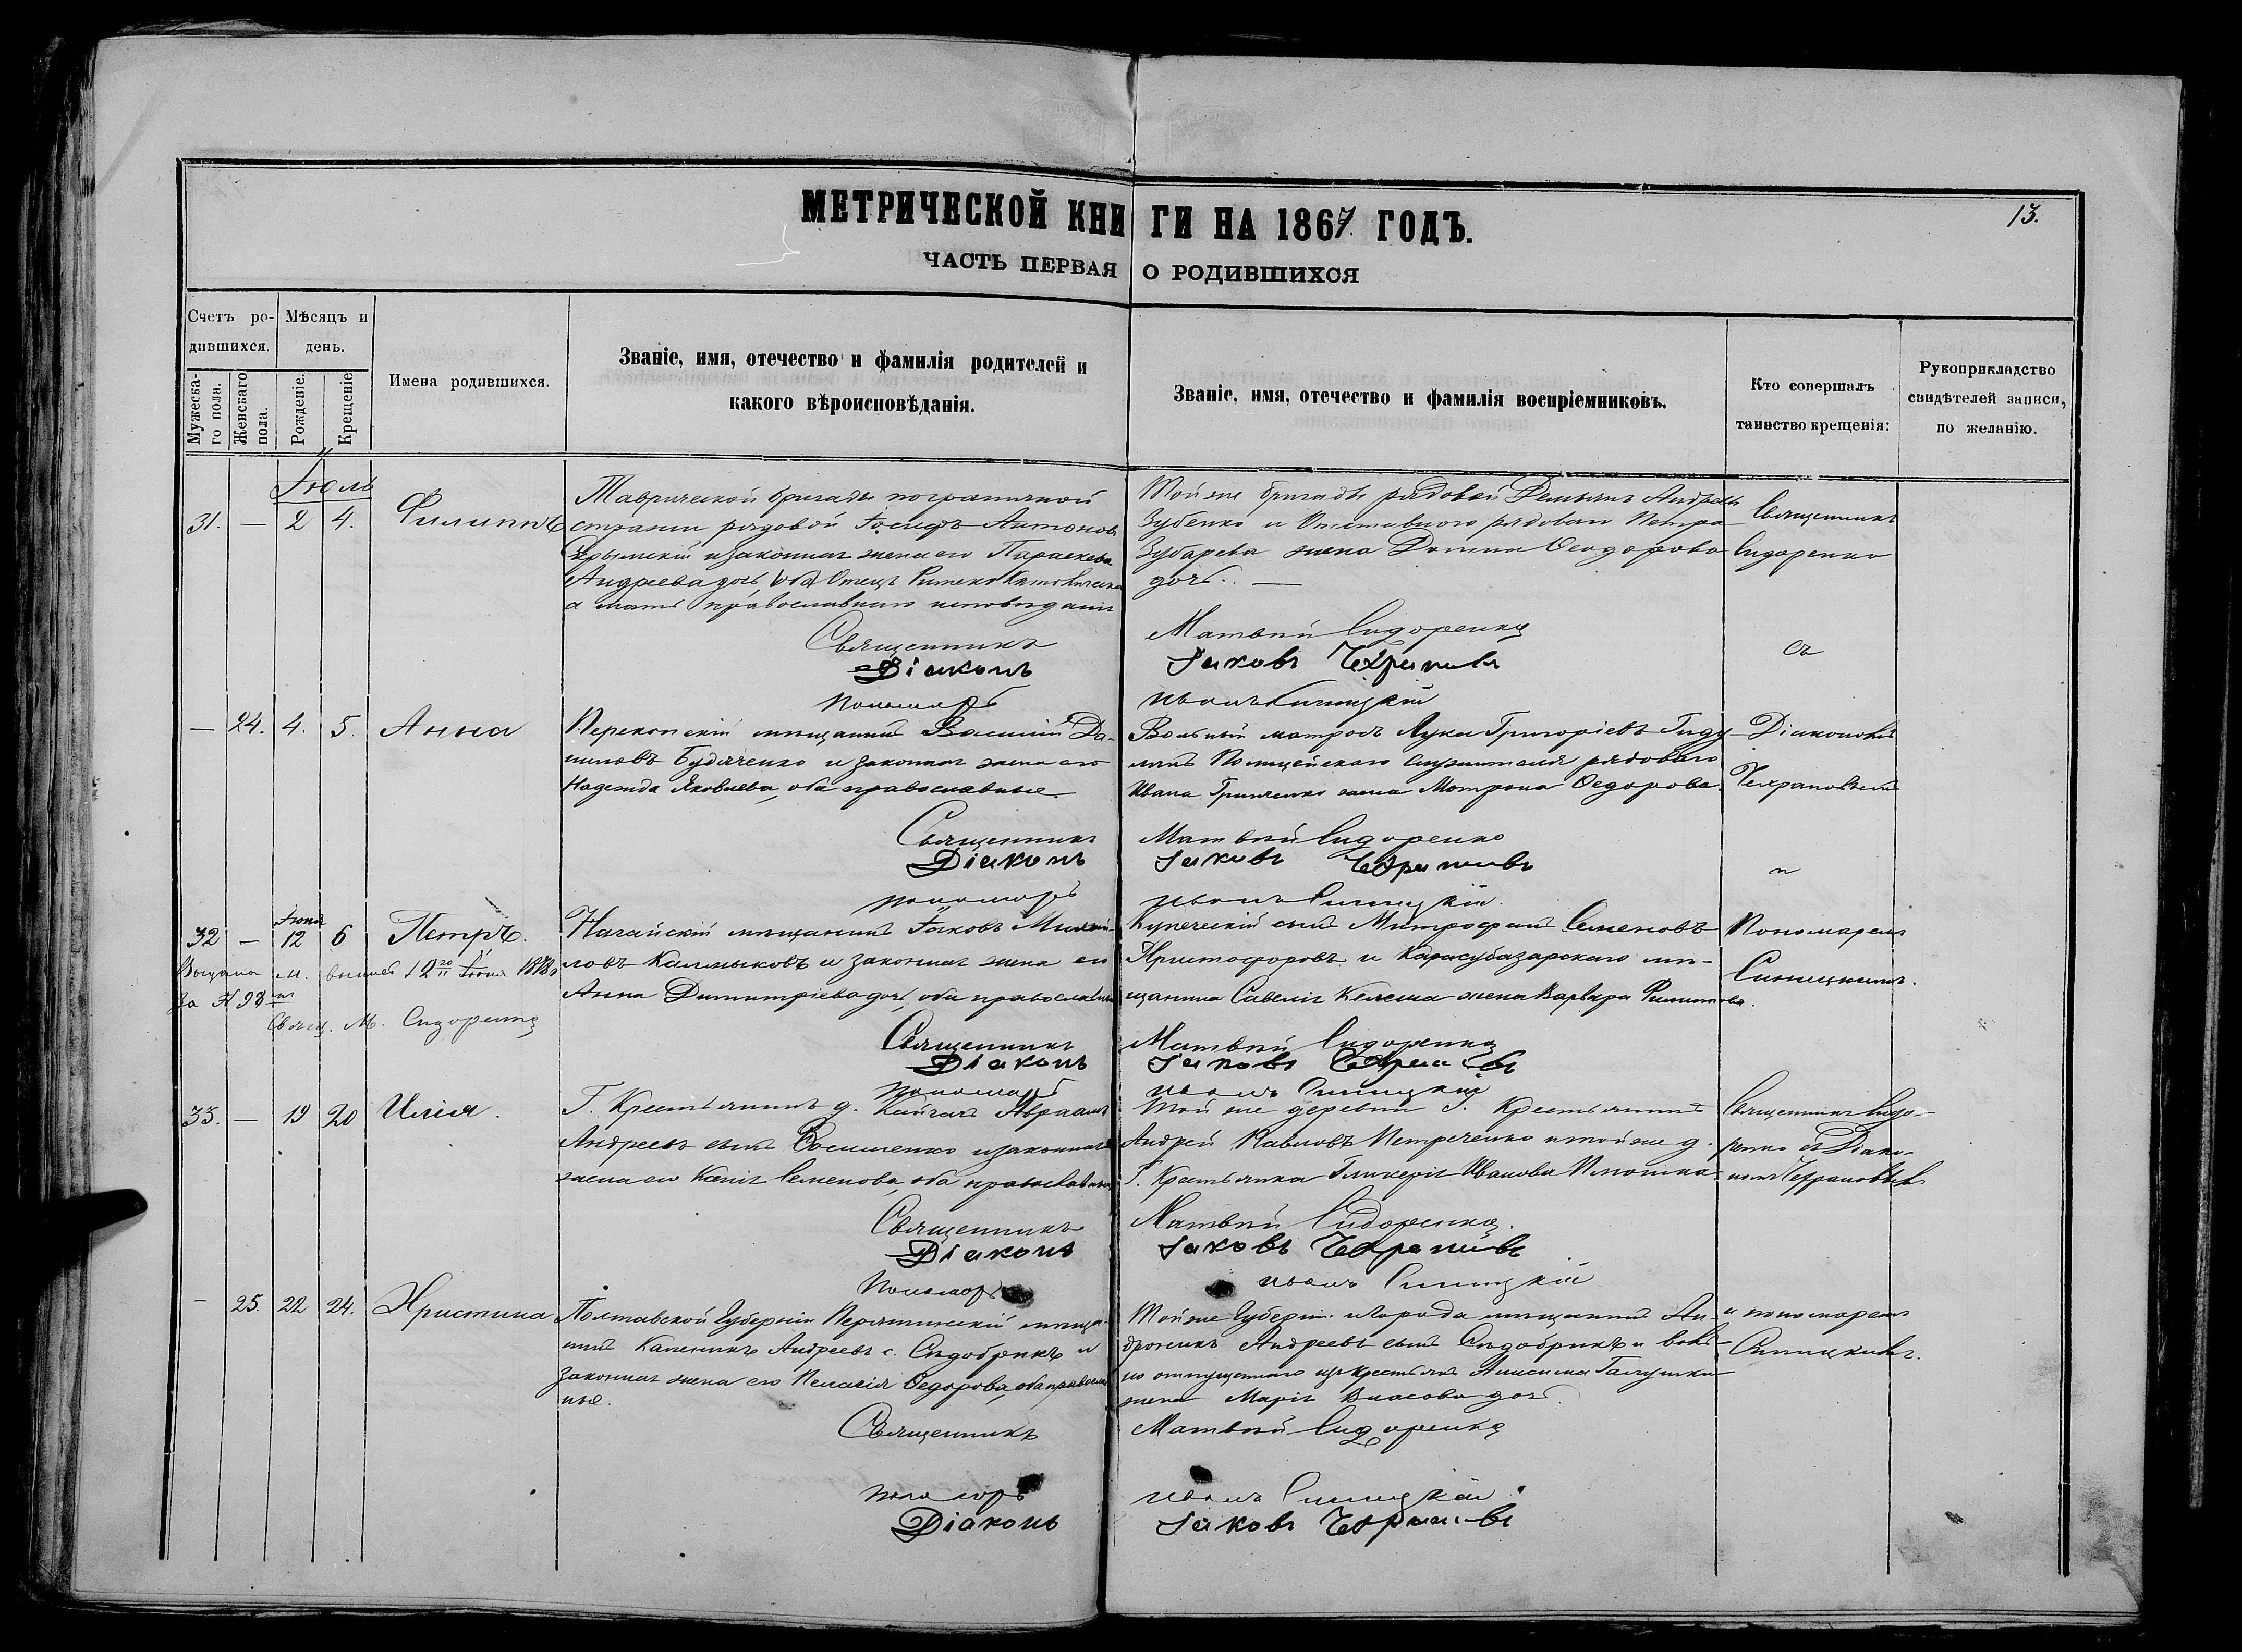 МЕТРИЧЕСКОЙ КНИГИ НА 1867 ГОДЪ.
13.
ЧАСТЬ ПЕРВАЯ О РОДИВШИХСЯ
Счетъ родившихся.
Мѣсяцъ и день.
Мужескаго пола.
Женскаго пола.
Рожденіе.
Крещеніе
Имена родившихся.
Званіе, имя, отечество и фамилія родителей и
какого вѣроисповѣданія.
Званіе, имя, отечество и фамилія воспріемниковъ.
Кто совершалъ
таинство крещенія:
Рукоприкладство
свидѣтелей записи,
по желанію.
Іюль
31. — 2 4. Филиппъ
Таврической бригады пограничной
стражи рядовой Іосифъ Антоновъ
и законная жена его Параскева
Андреева дочь, Отецъ Римско Католическаго
а мать православнаго исповѣданія
Той же бригады рядовой Демьянъ Андреевъ
Зубенко и Отставного рядового Петра
Зубарева жена Домна Ѳеодорова
дочь. —
Священникъ
Сидоренко
Священникъ Матвѣй Сидоренко
Діаконъ Іаковъ
съ
Пономарь Иванъ Синицкій
— 24. 4. 5. Анна
Перекопскій мѣщанинъ Василій Да-
ниловъ Будяченко и законная жена его
Надежда Яковлева, оба православные.
Вольный матросъ Лука Григорьевъ
Полицейскаго служителя рядового
Ивана Гринченко жена Мотрона Ѳедорова.
Діакономъ
Священникъ Матвѣй Сидоренко
Діаконъ Іаковъ
и
пономарь Иванъ Синицкій.
Іюня
32 — 12 6 Петръ.
Ногайскій мѣщанинъ Іаковъ Михай-
ловъ Калмыковъ и законная жена его
Анна Димитріева дочь, оба православные
Купеческій сынъ Митрофанъ Семеновъ
Христофоровъ и Карасубазарскаго мѣ-
щанина Савелія жена Варвара Филиппова.
Пономаремъ
Синицкимъ.
Выдана м. выпись
За № 98
Свящ. М. Сидоренко
Священникъ Матвѣй Сидоренко
Діаконъ Іаковъ
пономарь Иванъ Синицкій
33. — 19 20 Илія.
Г. Крестьянинъ д. Авраамъ
Андреевъ сынъ и законная
жена его Семенова, оба православные
Той же деревни Г. Крестьянинъ
Андрей Павловъ Петреченко и той же д.
Г. Крестьянка Гликерія Иванова
Священникъ Сидо-
ренко съ Діако-
номъ
Священникъ Матвѣй Сидоренко.
Діаконъ Іаковъ
Пономарь Иванъ Синицкій
— 25. 22 24. Христина
Полтавской Губерніи Пирятинскій мѣща-
нинъ Каленикъ Андреевъ с. и
законная жена его Пелагія Ѳедорова, оба православ-
ные.
Той же Губерніи и города мѣщанинъ Ан-
дроникъ Андреевъ сынъ и воль-
но отпущеннаго изъ крестьянъ Анисима Галушки
жена Марія Власова дочь.
и пономаремъ
Синицкимъ.
Священникъ Матвѣй Сидоренко
пономарь Иванъ Синицкій
Діаконъ Іаковъ